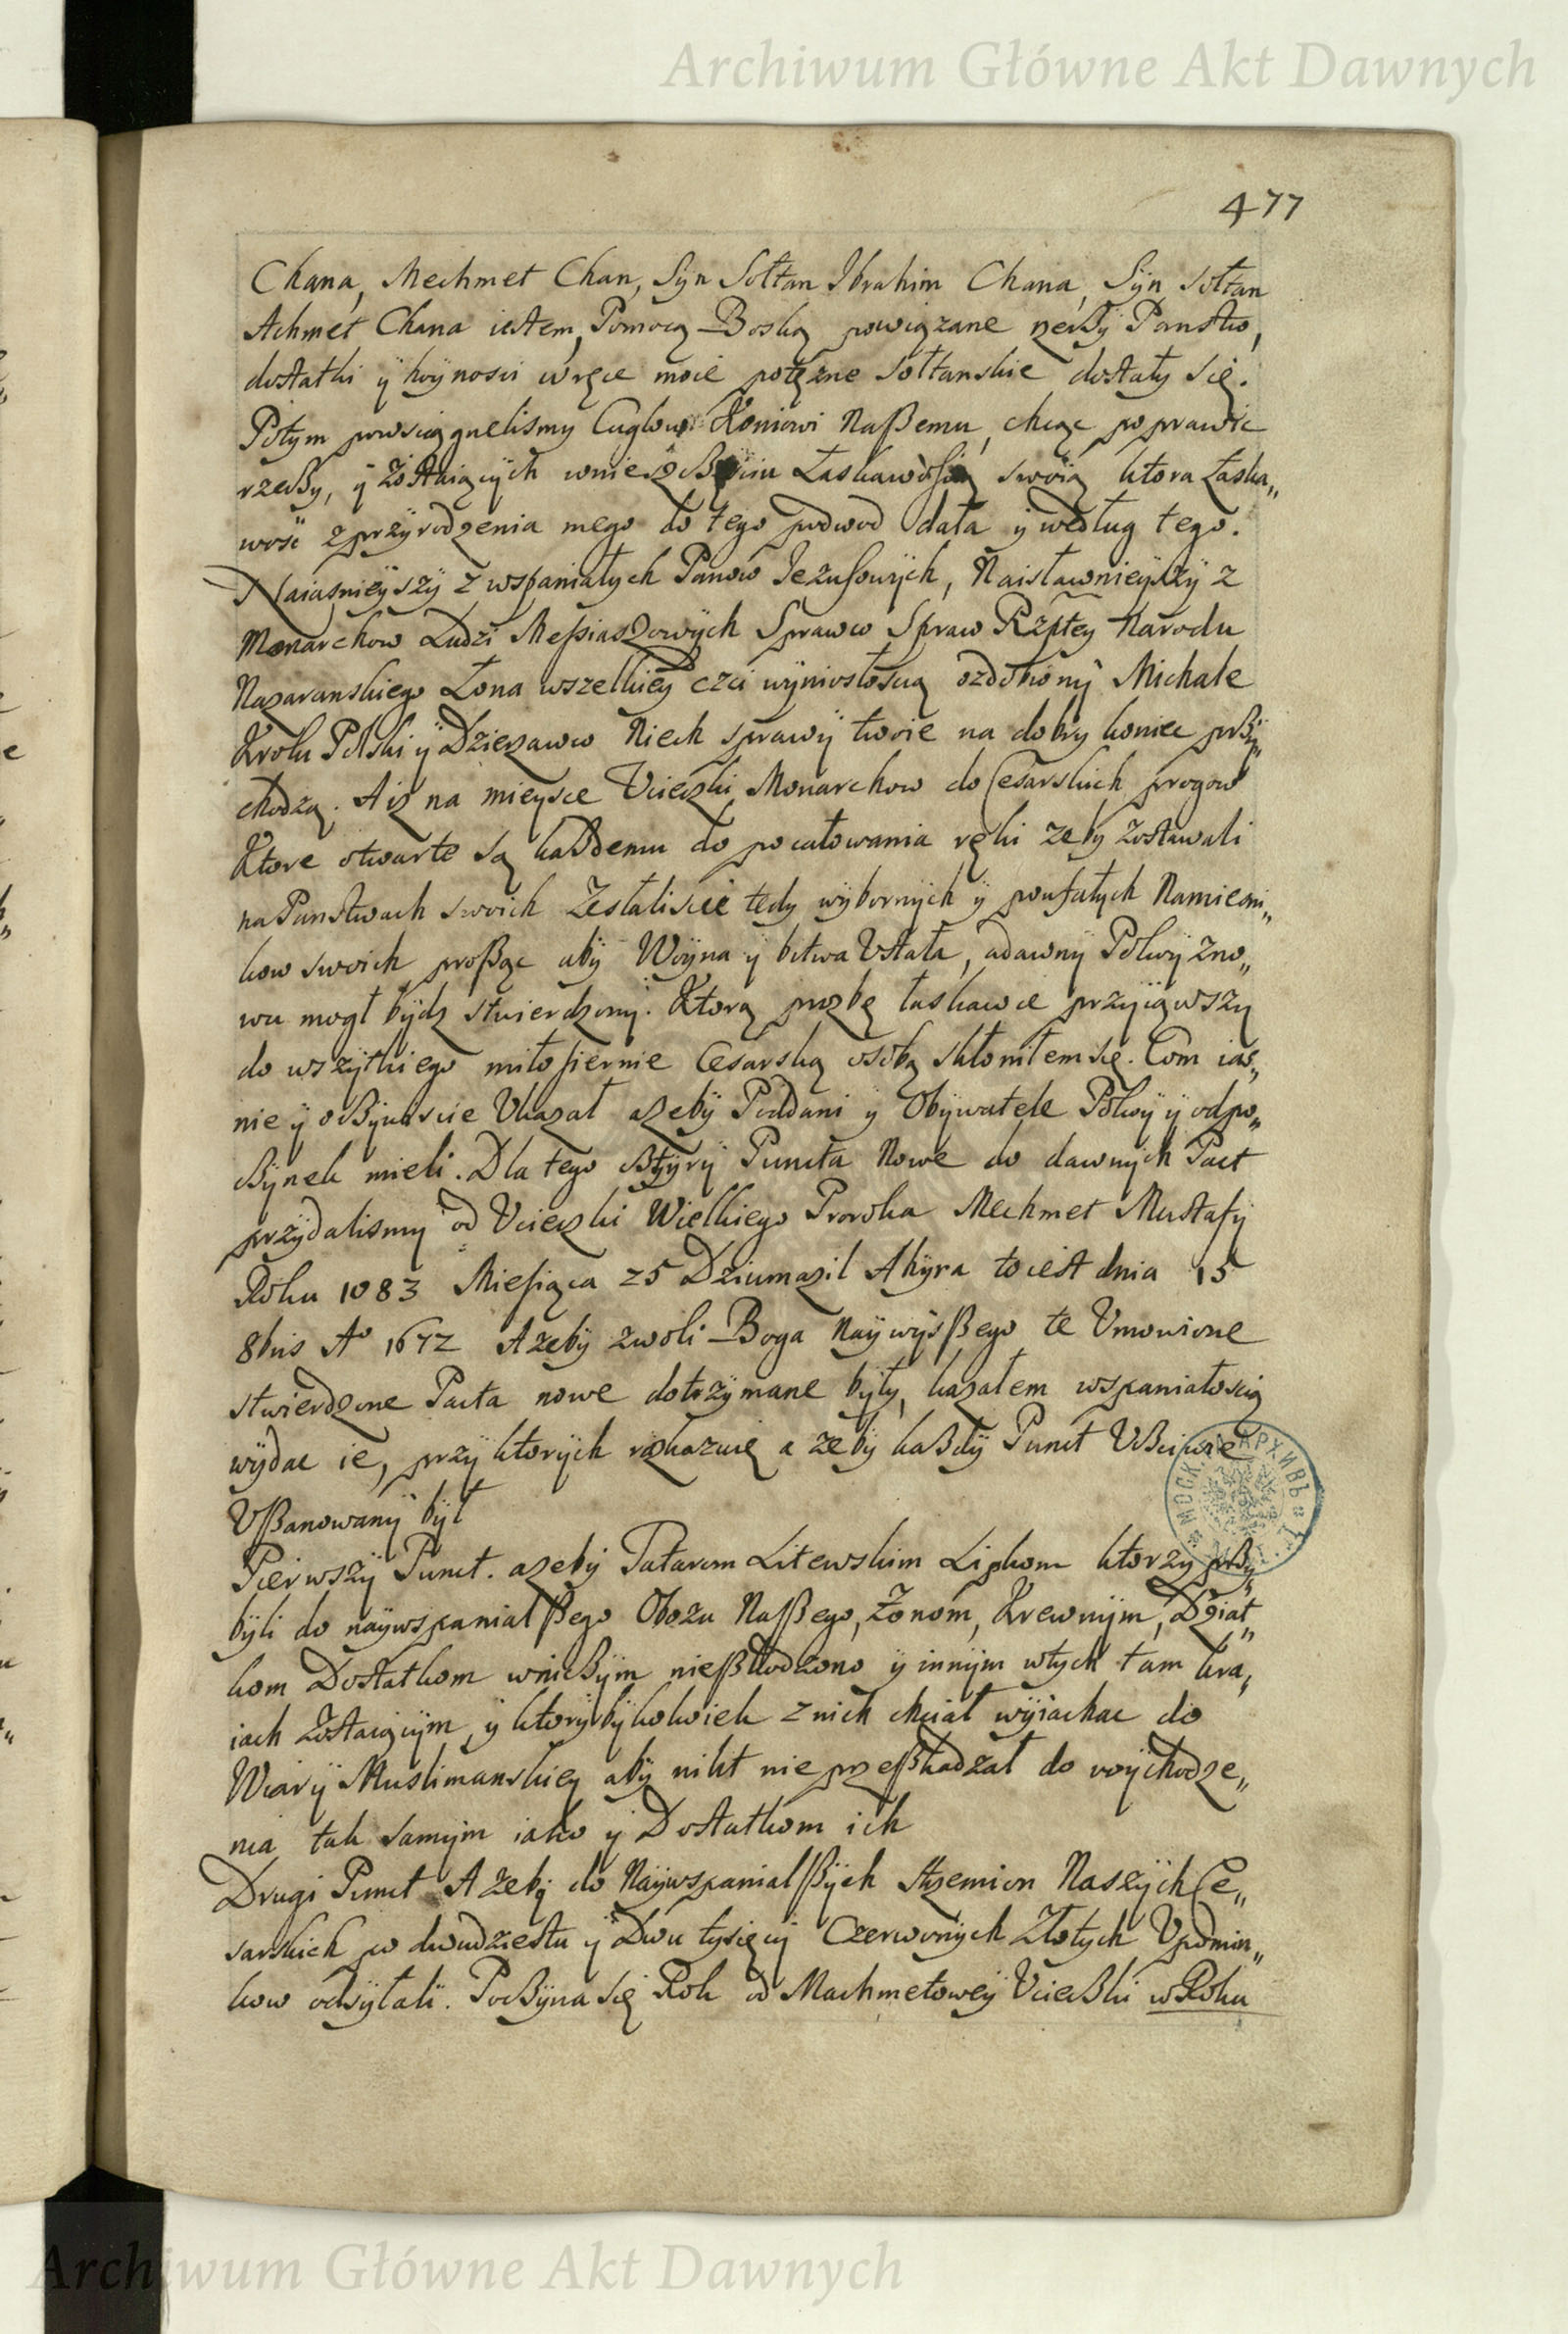 Archiwum Główne Akt Dawnych
477
Chana, Mechmet Chan, Syn Sołtan Ibrahim Chana, Syn Sołtan
Achmet Chana iestem, Pomocą Boską powiązane rzeczÿ Panstw,
dostatki ÿ hoÿnosci wręce moie potęzne Sołtanskie dostały się.
Potym powsciągnelismy Cuglow Koniowi Naßemu, chcąc poprawic
rzeczy, ÿ zostaiących wnieszczęsciu Łaskawosią swoią ktora Łaska„
wosc z przÿrodzenia mego do tego podwod dała ÿ według tego.
Naiasnieÿszÿ z wspaniałych Panow Jezusowÿch, Naisławnieyszÿ z
Monarchow Ludzi Meßiaszowÿch Sprawco Spraw Rzptey Narodu
Nazaranskiego Łona wszelkieÿ czci wÿniosłoscią ozdobionÿ Michale
Krolu Polski ÿ Dzierzawco Niech sprawÿ twoie na dobry koniec przÿ„
chodzą. A iz na mieysce Ucieczki Monarchow do Cesarskich progow
Ktore otwarte są kazdemu do pocałowania ręki zeby zostawali
na Panstwach swoich Zesłaliscie tedy wÿbornÿch ÿ poufałych Namiesni„
kow swoich proßąc abÿ Woÿna ÿ bitwa Ustała, adawnÿ Pokoÿ zno„
wu mogł bÿdz stwierdzonÿ. Ktorą prozbę łaskawie przÿiąwszy
do wszÿtkiego miłosiernie Cesarską osobą skłoniłem się. Com ias„
nie ÿ oczÿwiscie Ukazał azebÿ Poddani ÿ Obÿwatele Pokoÿ ÿ odpo„
czÿnek mieli. Dla tego cztÿrÿ Puncta Nowe do dawnÿch Pact
przÿdalismy od Ucieczki Wielkiego Proroka Mechmet Mustafÿ
Roku 1083 Miesiąca 25 Dziumazil Ahÿra to iest dnia 15
8bris Aº 1672 Azebÿ zwoli Boga Naÿwÿsßego te Umowione
stwierdzone Pacta nowe dotrzÿmane bÿłÿ, kazałem wspaniałoscią
wÿdac ie, przÿ ktorÿch roskazuię a zebÿ kazdÿ Punct Uczciwie
Ußanowanÿ bÿł
Pierwszÿ Punct. azebÿ Tatarom Litewskim Lipkom ktorzy przÿ„
bÿli do naÿwspanialßego Obozu Naßego, Zonom, Krewnÿm, Dziat„
kom Dostatkom wniczÿm nießkodzono ÿ innÿm wtych tam kra„
iach Zostaiącÿm, ÿ ktorÿbÿkolwiek z nich chciał wÿiachac do
Wiarÿ Muslimanskieÿ abÿ nikt nie przeßkadzał do wÿchodze„
nia tak samÿm iako ÿ Dostatkom ich
Drugi Punct Azebÿ do Naÿwspanialßÿch Strzemion Naszÿch Ce„
sarskich po dwudziestu ÿ Dwu tysięcÿ Czerwonÿch Złotych Upomin„
kow odsÿłali. Poczÿna się Rok od Machmetoweÿ Ucieczki w Roku
Archiwum Główne Akt Dawnych